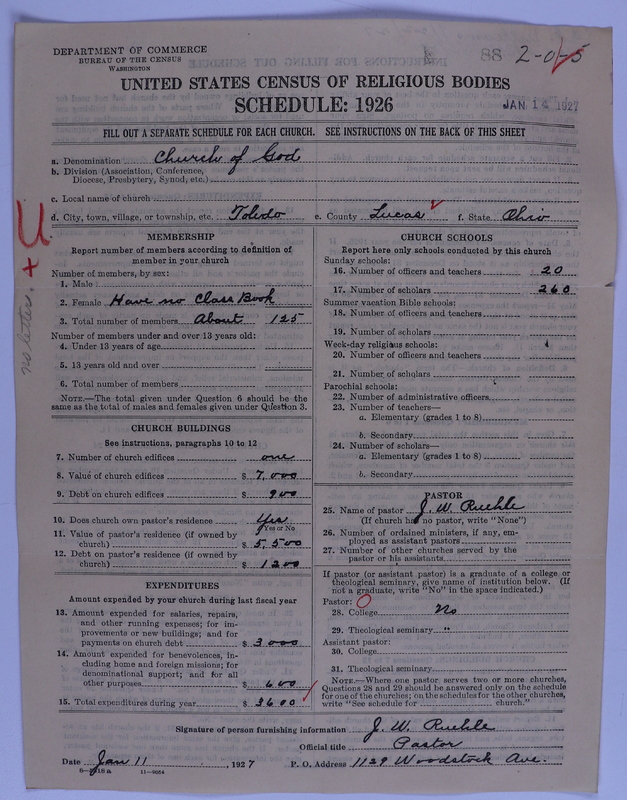 DEPARTMENT OF COMMERCE
BUREAU OF THE CENSUS
WASHINGTON
88 2-0-5
UNITED STATES CENSUS OF RELIGIOUS BODIES
SCHEDULE: 1926
JAN 14 1927
FILL OUT A SEPARATE SCHEDULE FOR EACH CHURCH. SEE INSTRUCTIONS ON THE BACK OF THIS SHEET
a. Denomination Church of God
b. Division (Association, Conference,
Diocese, Presbytery, Synod, etc.)
c. Local name of church
d. City, town, village, or township, etc. Toledo e. County Lucas f. State Ohio
U +
no letter.
MEMBERSHIP
Report number of members according to definition of
member in your church
Number of members, by sex:
1. Male
2. Female Have no Class Book
3. Total number of members About 125
Number of members under and over 13 years old:
4. Under 13 years of age
5. 13 years old and over
6. Total number of members
NOTE.—The total given under Question 6 should be the
same as the total of males and females given under Question 3.
CHURCH BUILDINGS
See instructions, paragraphs 10 to 12
7. Number of church edifices one
8. Value of church edifices $ 7,000
9. Debt on church edifices $ 900
10. Does church own pastor's residence Yes
Yes or No
11. Value of pastor's residence (if owned by
church) $ 5,500
12. Debt on pastor's residence (if owned by
church) $ 1200
EXPENDITURES
Amount expended by your church during last fiscal year
13. Amount expended for salaries, repairs,
and other running expenses; for im-
provements or new buildings; and for
payments on church debt $ 3000
14. Amount expended for benevolences, in-
cluding home and foreign missions; for
denominational support; and for all
other purposes $ 600
15. Total expenditures during year $ 3600
CHURCH SCHOOLS
Report here only schools conducted by this church
Sunday schools:
16. Number of officers and teachers 20
17. Number of scholars 260
Summer vacation Bible schools:
18. Number of officers and teachers
19. Number of scholars
Week-day religious schools:
20. Number of officers and teachers
21. Number of scholars
Parochial schools:
22. Number of administrative officers
23. Number of teachers—
a. Elementary (grades 1 to 8)
b. Secondary
24. Number of scholars—
a. Elementary (grades 1 to 8)
b. Secondary
PASTOR
25. Name of pastor J. W. Ruehle
(If church has no pastor, write "None")
26. Number of ordained ministers, if any, em-
ployed as assistant pastors
27. Number of other churches served by the
pastor or his assistants
If pastor (or assistant pastor) is a graduate of a college or
theological seminary, give name of institution below. (If
not a graduate, write "No" in the space indicated.)
Pastor: O
28. College No
29. Theological seminary "
Assistant pastor:
30. College
31. Theological seminary
NOTE.—Where one pastor serves two or more churches,
Questions 28 and 29 should be answered only on the schedule
for one of the churches; on the schedules for the other churches,
write "See schedule for church."
Signature of person furnishing information J. W. Ruehle
Official title Pastor
Date Jan 11, 1927 P. O. Address 1129 Woodstock Ave.
11—9054